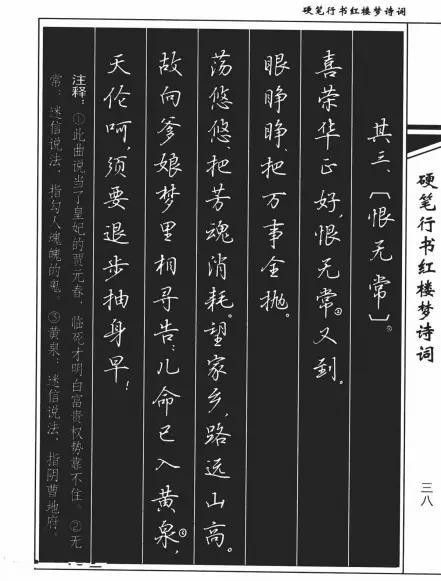 硬笔行书红楼梦诗词
其三、〔恨无常〕①
喜荣华正好,恨无常②又到。
眼睁睁、把万事全抛。
荡悠悠、把芳魂消耗。望家乡,路远山高。
故向爹娘梦里相寻告:儿命已入黄泉③,
天伦呵,须要退步抽身早!
注释:①此曲说当了皇妃的贾元春,临死才明白富贵权势靠不住。②无
常:迷信说法,指勾人魂魄的鬼。③黄泉:迷信说法,指阴曹地府。
硬笔行书红楼梦诗词
三八